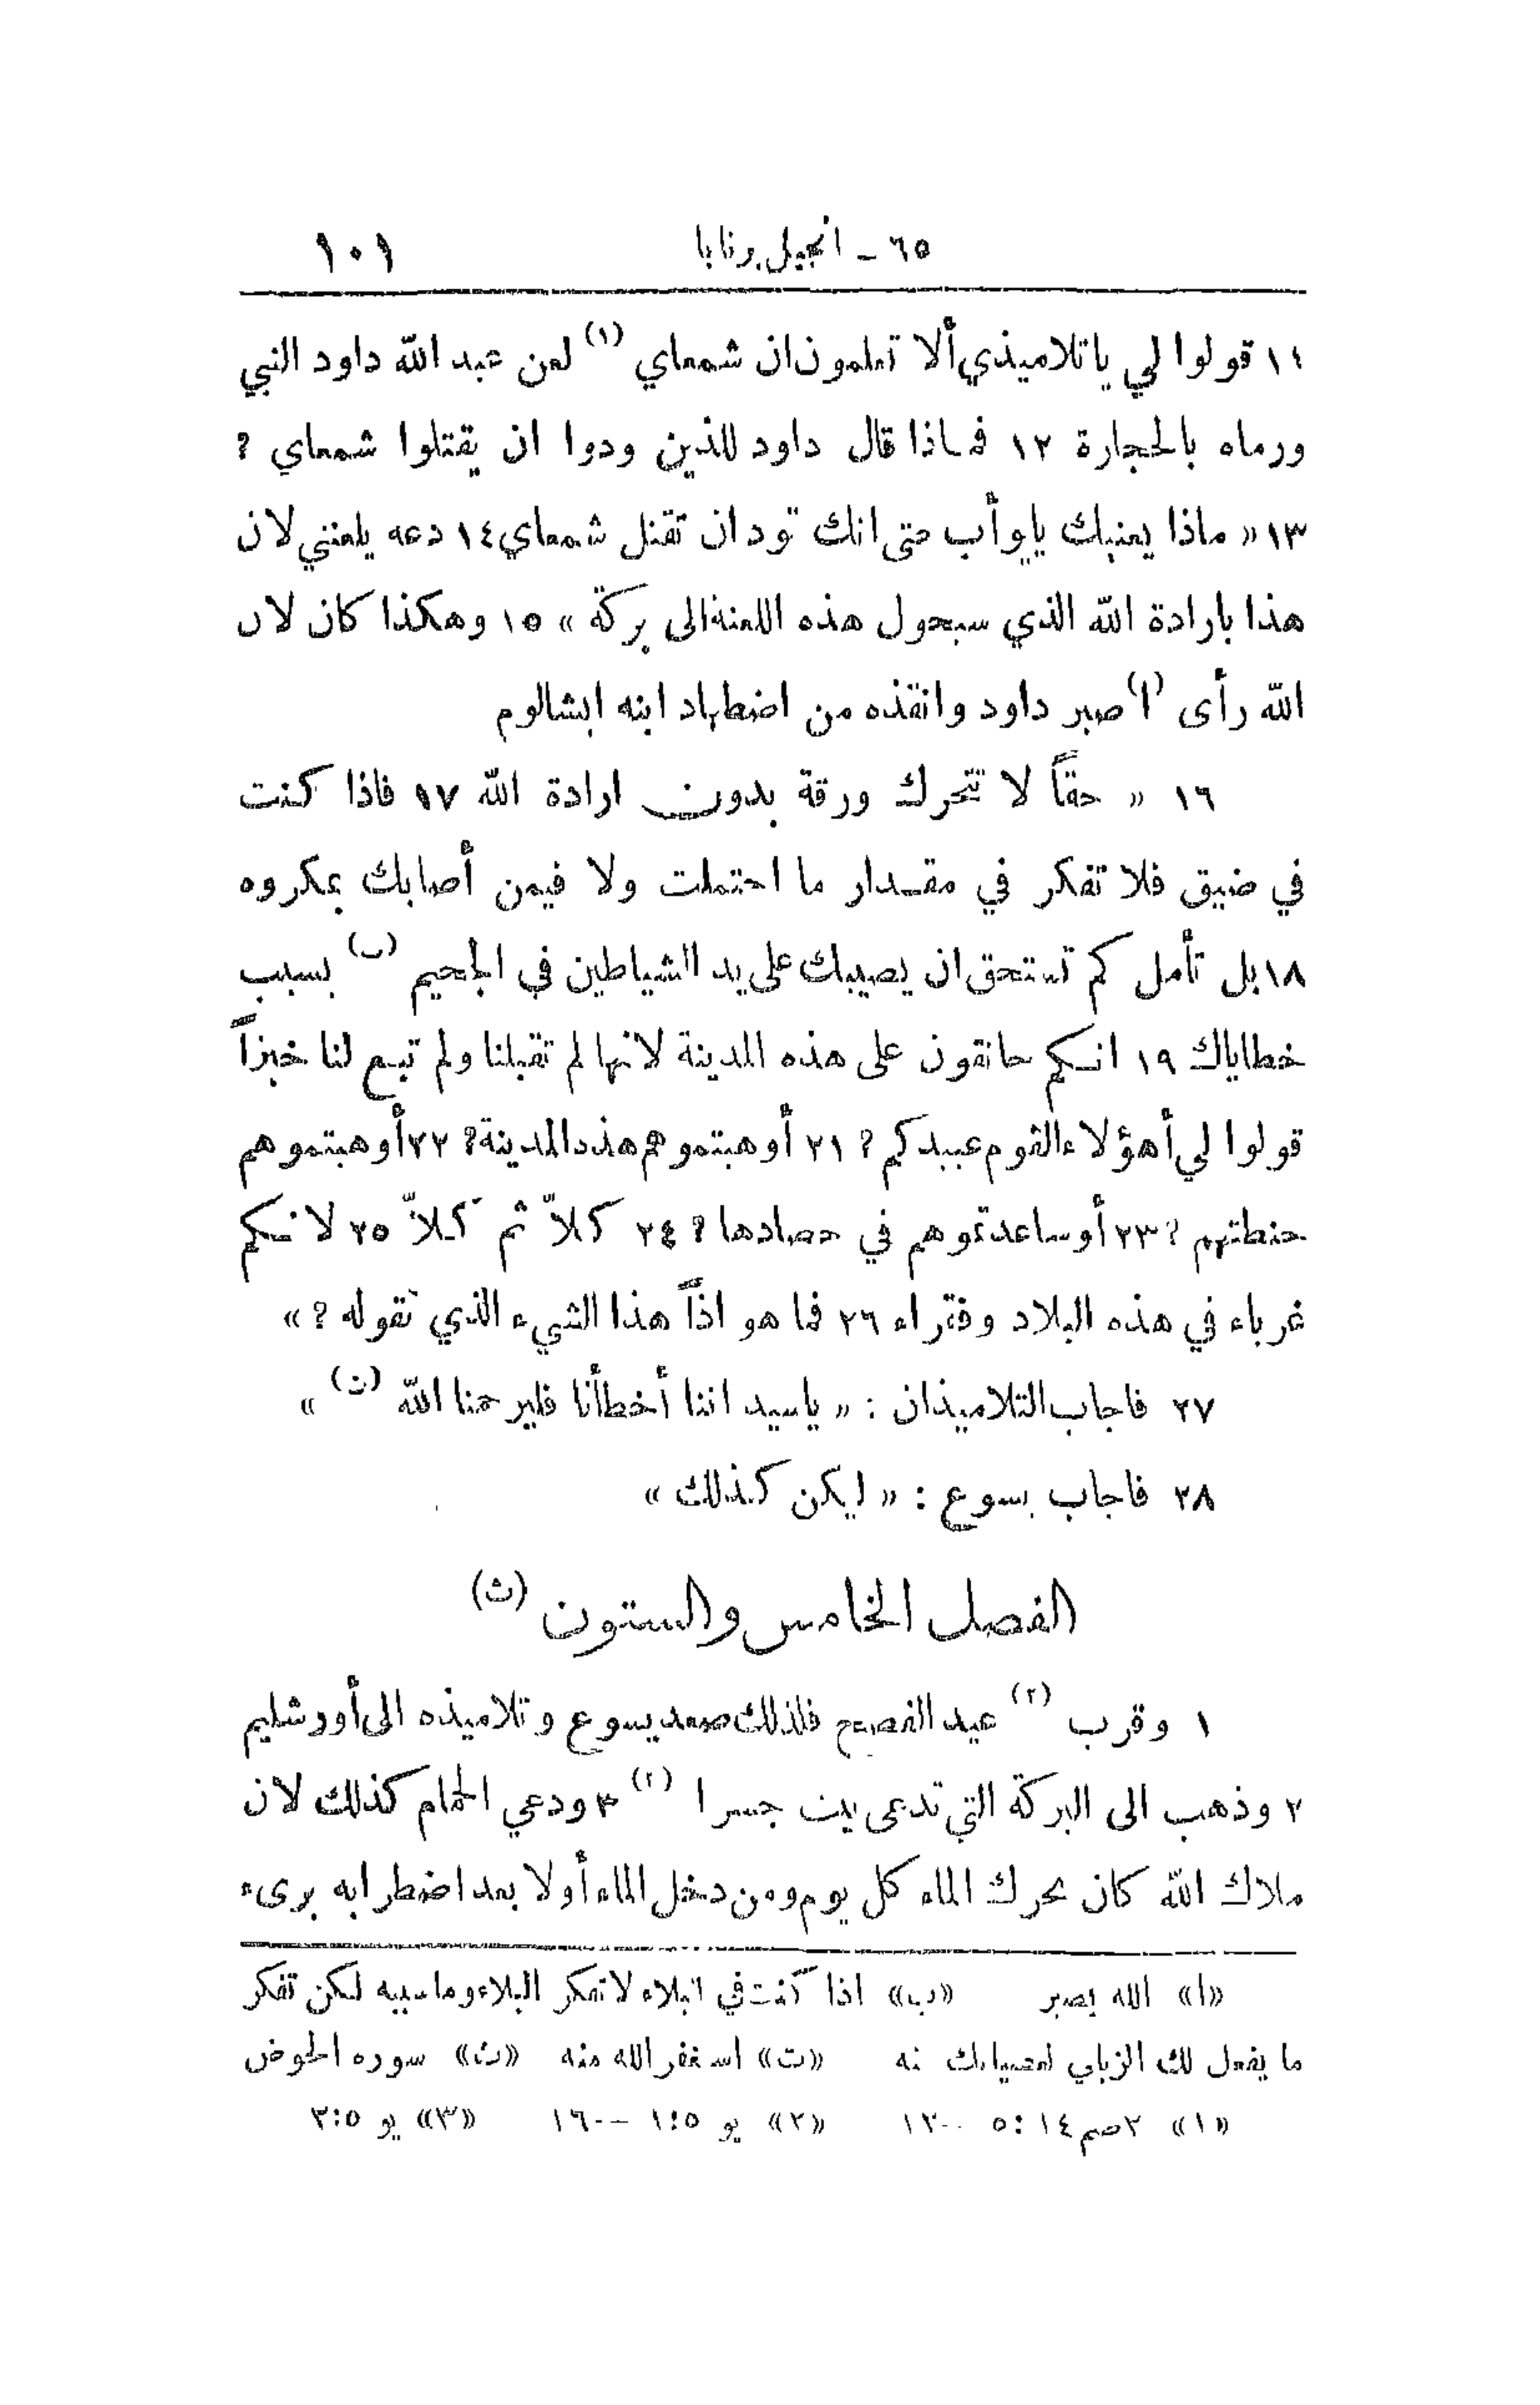 ٦٥ - انجيل برنابا ١٠١
١١ قولوا لي ياتلاميذي ألا تعلمون ان شمعاي (١) لعن عبد الله داود النبي
ورماه بالحجارة ١٢ فماذا قال داود للذين ودوا ان يقتلوا شمعاي ?
١٣ « ماذا يعنيك يايوأب حتى انك تود ان تقتل شمعاي ١٤ دعه يلعنني لان
هذا بارادة الله الذي سيحول هذه اللعنة الى بركة » ١٥ وهكذا كان لان
الله رأى (ا) صبر داود وانقذه من اضطهاد ابنه ابشالوم
١٦ « حقاً لا تتحرك ورقة بدون ارادة الله ١٧ فاذا كنت
في ضيق فلا تفكر في مقدار ما احتملت ولا فيمن أصابك بمكروه
١٨ بل تأمل كم تستحق ان يصيبك على يد الشياطين في الجحيم (ب) بسبب
خطاياك ١٩ انكم حانقون على هذه المدينة لانها لم تقبلنا ولم تبع لنا خبزاً
قولوا لي أهؤلاء القوم عبيدكم ? ٢١ أوهبتموهم هذه المدينة ? ٢٢ أوهبتموهم
حنطتهم ? ٢٣ أوساعدتموهم في حصادها ? ٢٤ كلاّ ثم كلاّ ٢٥ لانكم
غرباء في هذه البلاد وفقراء ٢٦ فما هو اذاً هذا الشيء الذي تقوله ? »
٢٧ فاجاب التلاميذان : « ياسيد اننا أخطأنا فليرحمنا الله (ت) »
٢٨ فاجاب يسوع : « ليكن كذلك »
الفصل الخامس والستون (ث)
١ وقرب (٢) عيد الفصح فلذلك صعد يسوع وتلاميذه الى أورشليم
٢ وذهب الى البركة التي تدعى بيت جسرا (٣) ٣ ودعي الحمام كذلك لان
ملاك الله كان يحرك الماء كل يوم ومن دخل الماء أولا بعد اضطرابه برىء
«ا» الله يصبر «ب» اذا كنت في البلاء لا تفكر البلاء وما سببه لكن تفكر
ما يفعل لك الزباني لعصيانك نه «ت» استغفر الله منه «ث» سوره الحوض
«١» ٢صم ١٤ : ٥ -- ١٢ «٢» يو ٥:‏١ -- ١٦ «٣» يو ٥:‏٢